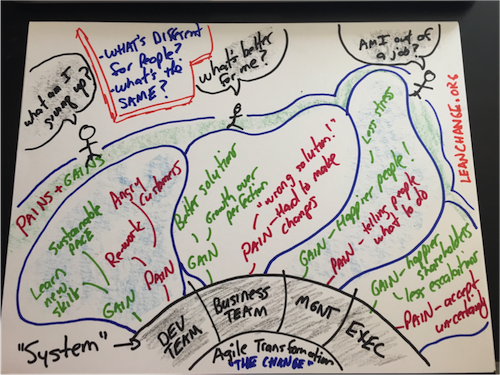 -WHAT'S DIFFERENT
for PEOPLE?
-WHAT'S THE
SAME?
what am I
giving up?
what's better
for me?
AM I out of
a job?
LEANCHANGE.ORG
PAINS + GAINS
Sustainable
PACE
Learn
new
skills
GAIN
Angry
Customers
Rework
PAIN
Better solution
Growth over
perfection
GAIN
"wrong solution!"
Had to make
changes
PAIN
Less stress
GAIN - Happier people!
PAIN - telling people
what to do
GAIN - happier
shareholders
less escalations
PAIN - accept
uncertainty
"System"
DEV
TEAM
BUSINESS
TEAM
MGMT
EXEC
Agile Transformation
"THE CHANGE"